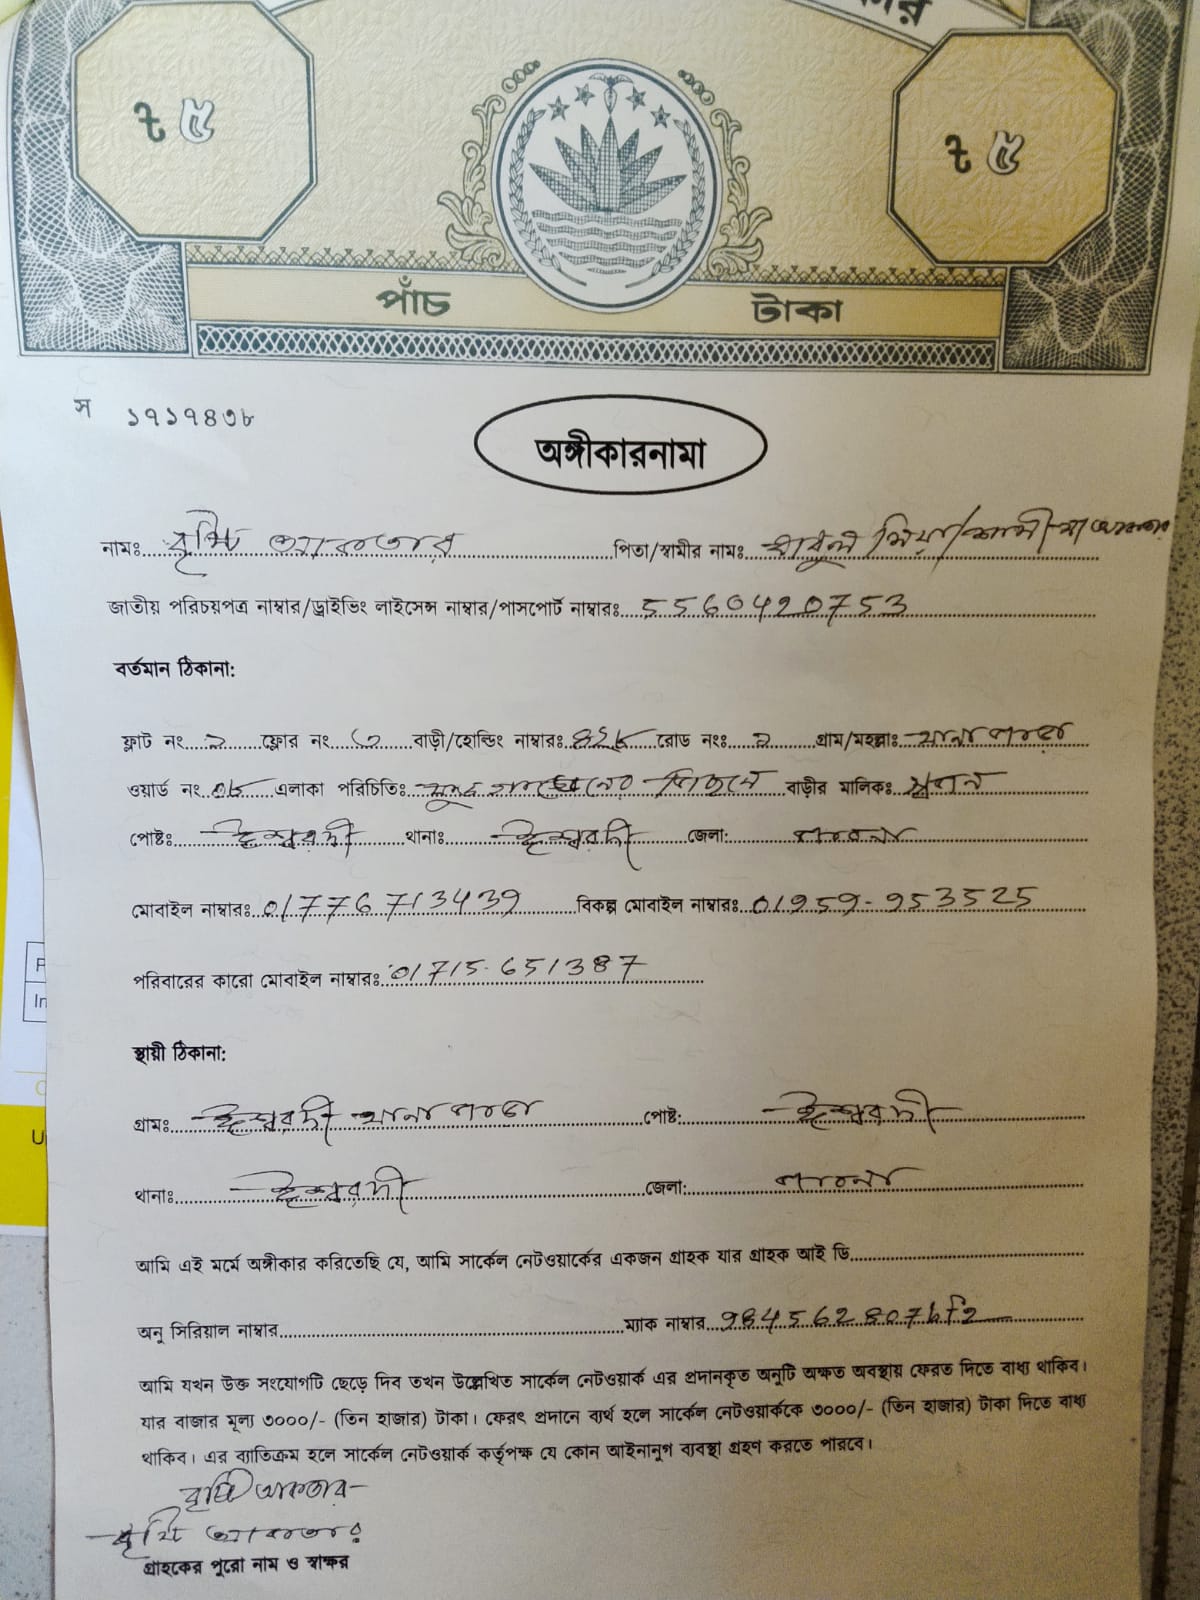 কার
৳ ৫
৳ ৫
পাঁচ টাকা
স ১৭১৭৪৩৮
অঙ্গীকারনামা
নামঃ বৃষ্টি আকতার পিতা/স্বামীর নামঃ বাবুল মিয়া/
জাতীয় পরিচয়পত্র নাম্বার/ড্রাইভিং লাইসেন্স নাম্বার/পাসপোর্ট নাম্বারঃ 5560420753
বর্তমান ঠিকানা:
ফ্লাট নং ২ ফ্লোর নং ৩ বাড়ী/হোল্ডিং নাম্বারঃ রোড নংঃ ২ গ্রাম/মহল্লাঃ থানা পাড়া
ওয়ার্ড নং ০৮ এলাকা পরিচিতিঃ পিছনে বাড়ীর মালিকঃ স্বপন
পোষ্টঃ ঈশ্বরদী থানাঃ ঈশ্বরদী জেলা: পাবনা
মোবাইল নাম্বারঃ 01776713439 বিকল্প মোবাইল নাম্বারঃ 01959-953525
পরিবারের কারো মোবাইল নাম্বারঃ 01715-651387
স্থায়ী ঠিকানা:
গ্রামঃ ঈশ্বরদী থানা পাড়া পোষ্ট: ঈশ্বরদী
থানাঃ ঈশ্বরদী জেলা: পাবনা
আমি এই মর্মে অঙ্গীকার করিতেছি যে, আমি সার্কেল নেটওয়ার্কের একজন গ্রাহক যার গ্রাহক আই ডি
অনু সিরিয়াল নাম্বার ম্যাক নাম্বার 984562807bf2
আমি যখন উক্ত সংযোগটি ছেড়ে দিব তখন উল্লেখিত সার্কেল নেটওয়ার্ক এর প্রদানকৃত অনুটি অক্ষত অবস্থায় ফেরত দিতে বাধ্য থাকিব।
যার বাজার মূল্য ৩০০০/- (তিন হাজার) টাকা। ফেরৎ প্রদানে ব্যর্থ হলে সার্কেল নেটওয়ার্ককে ৩০০০/- (তিন হাজার) টাকা দিতে বাধ্য
থাকিব। এর ব্যাতিক্রম হলে সার্কেল নেটওয়ার্ক কর্তৃপক্ষ যে কোন আইনানুগ ব্যবস্থা গ্রহণ করতে পারবে।
বৃষ্টি আকতার
বৃষ্টি আকতার
গ্রাহকের পুরো নাম ও স্বাক্ষর